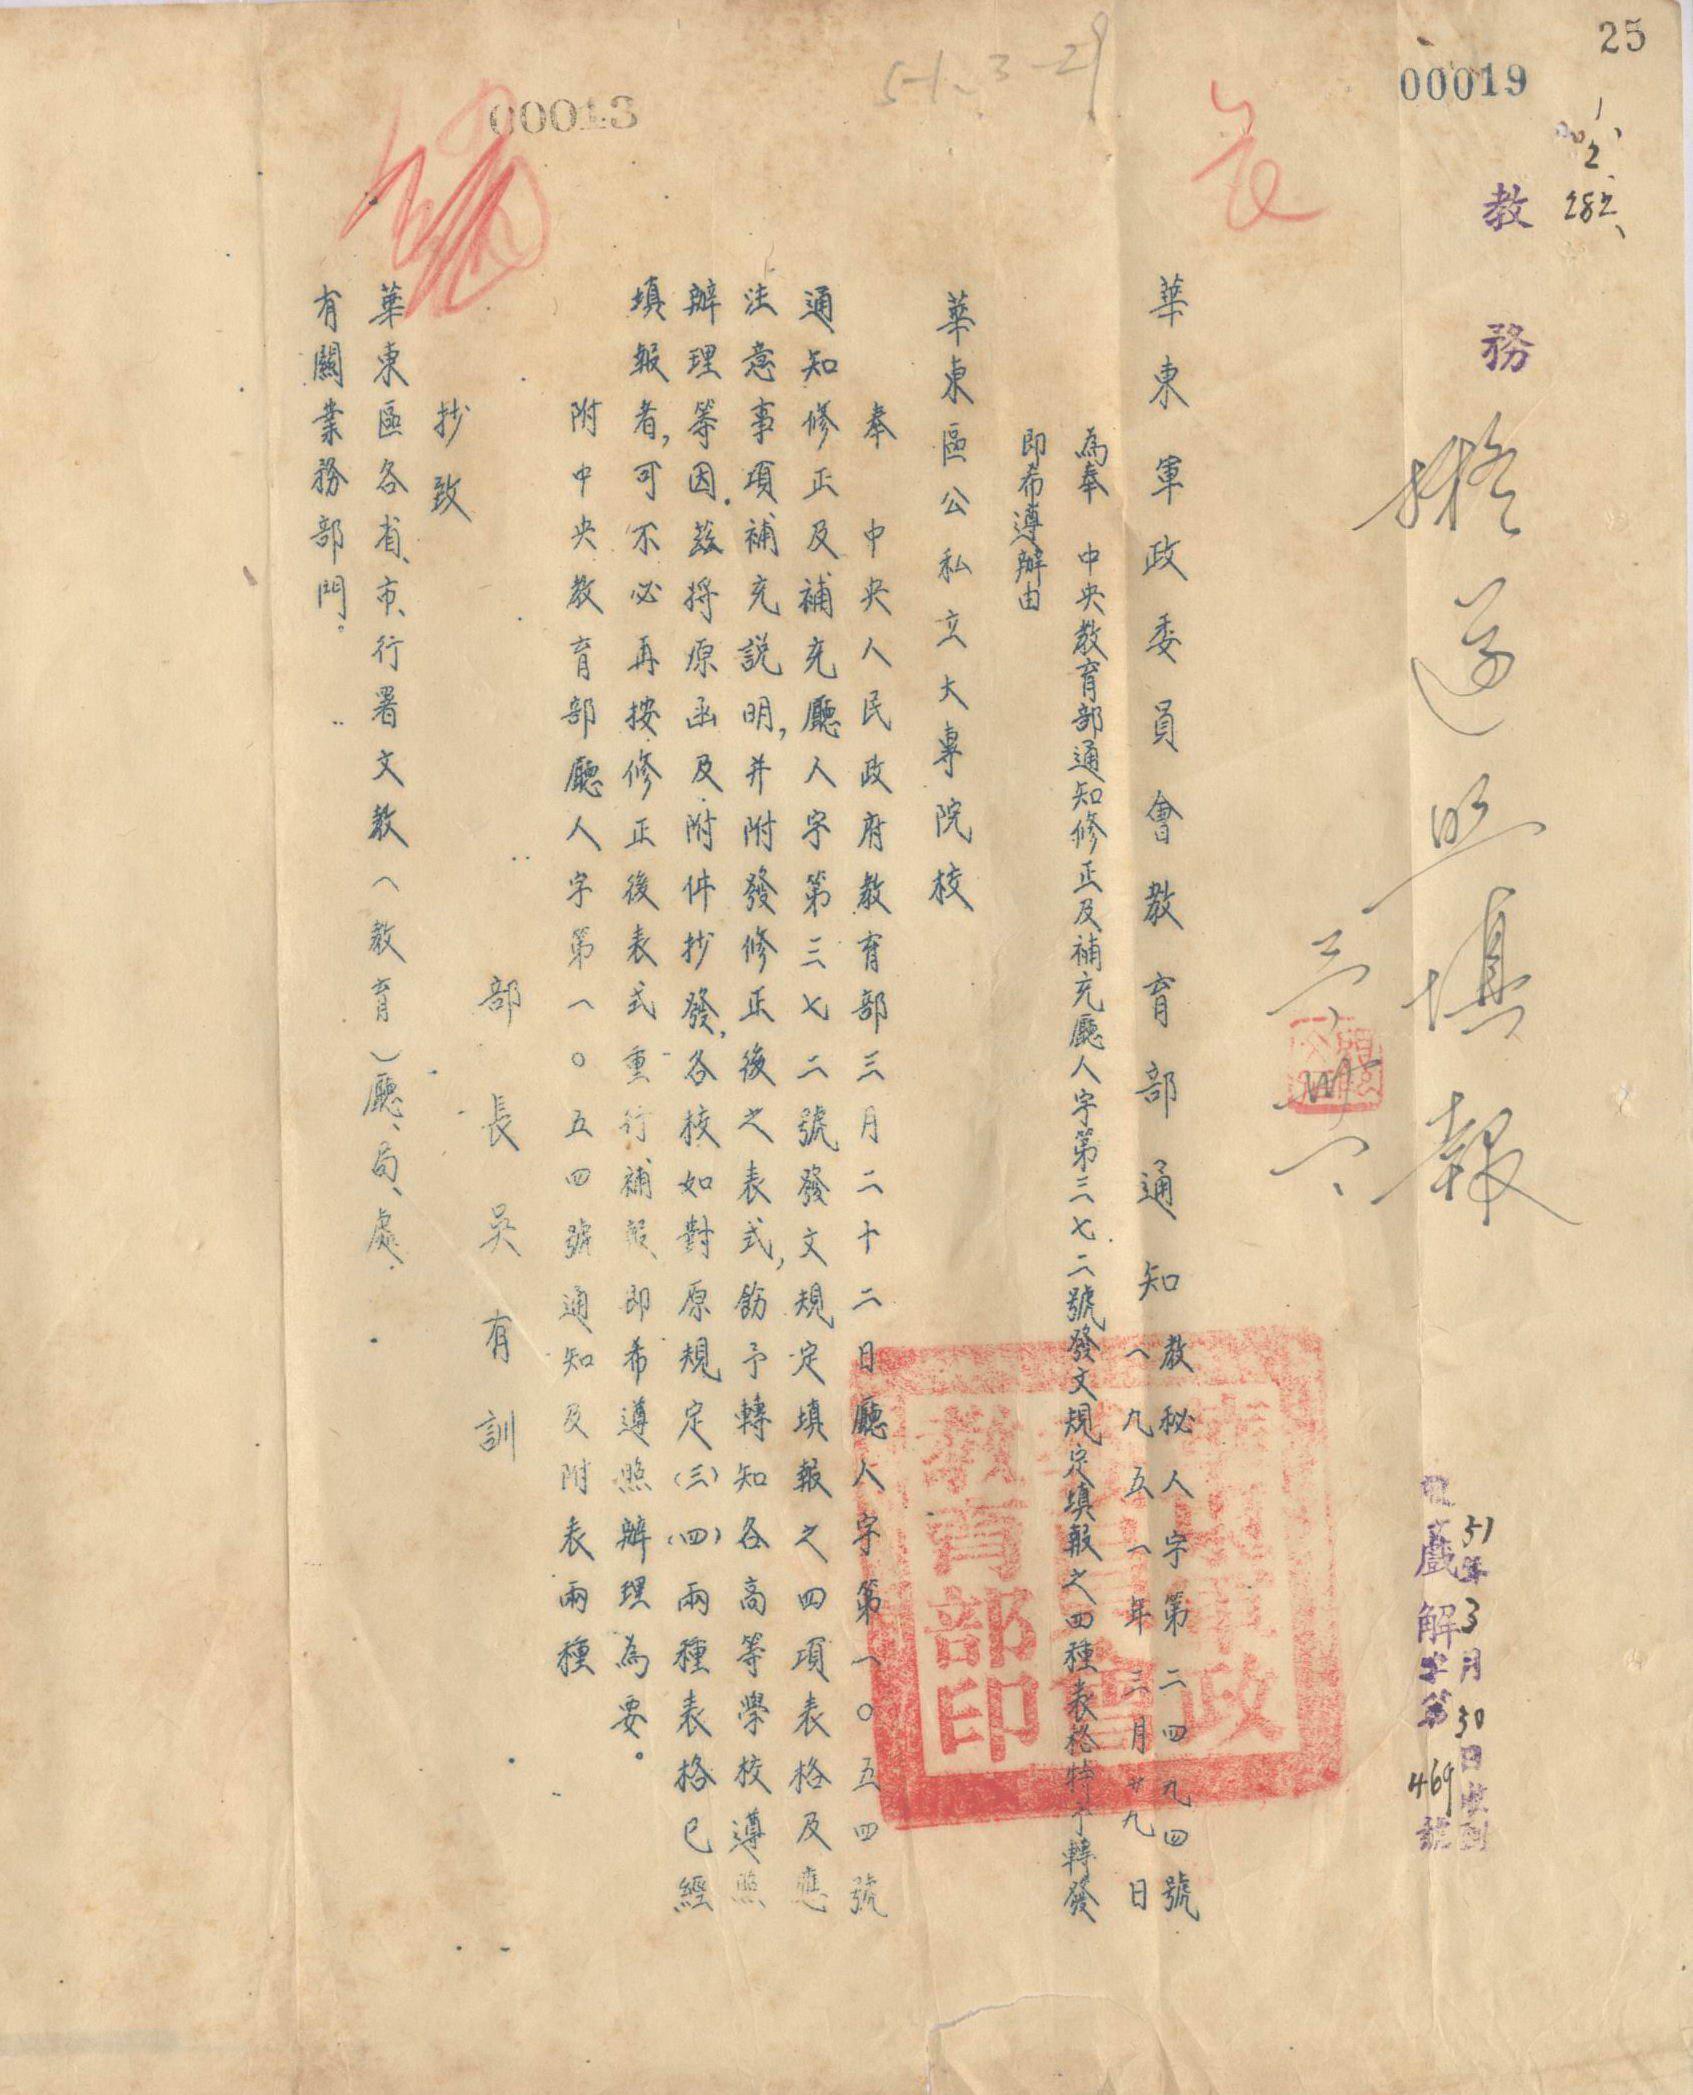 25
00019
282
51-3-29
00013
教務
遵照填報
51年3月30日收到
戲解字第469號
華東軍政委員會教育部通知
教秘人字第二四九四號
一九五一年三月廿九日
為奉 中央教育部通知修正及補充廳人字第三七二號發文規定填報之四種表格特予轉發
即希遵辦由
華東區公私立大專院校
奉 中央人民政府教育部三月二十二日廳人字第一〇五四號
通知修正及補充廳人字第三七二號發文規定填報之四項表格及應
注意事項補充説明，并附發修正後之表式，飭予轉知各高等學校遵照
辦理等因。茲將原函及附件抄發，各校如對原規定(三)(四)兩種表格已經
填報者，可不必再按修正後表式重行補報、即希遵照辦理為要。
附中央教育部廳人字第一〇五四號通知及附表兩種
部長吳有訓
抄致
華東區各省、市、行署文教（教育）廳、局、處．
有關業務部門。
教育部印